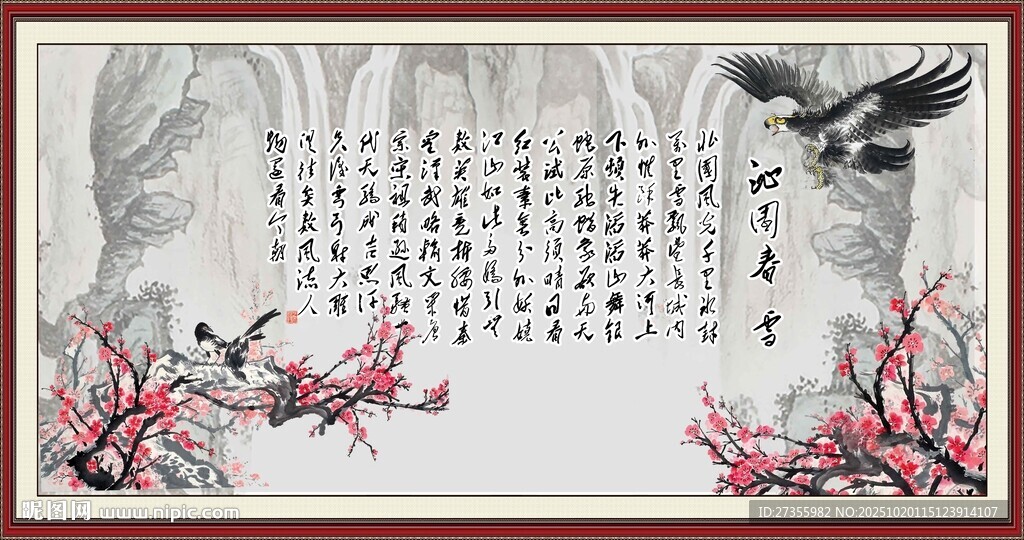 沁園春 雪
北國風光千里冰封
萬里雪飄望長城内
外惟餘莽莽大河上
下頓失滔滔山舞銀
蛇原馳蠟象欲與天
公試比高須晴日看
紅裝素裹分外妖嬈
江山如此多嬌引無
數英雄競折腰惜秦
皇漢武略輸文采唐
宗宋祖稍遜風騷一
代天驕成吉思汗
只識彎弓射大雕
俱往矣數風流人
物還看今朝
昵图网 www.nipic.com
ID:27355982 NO:20251020115123914107